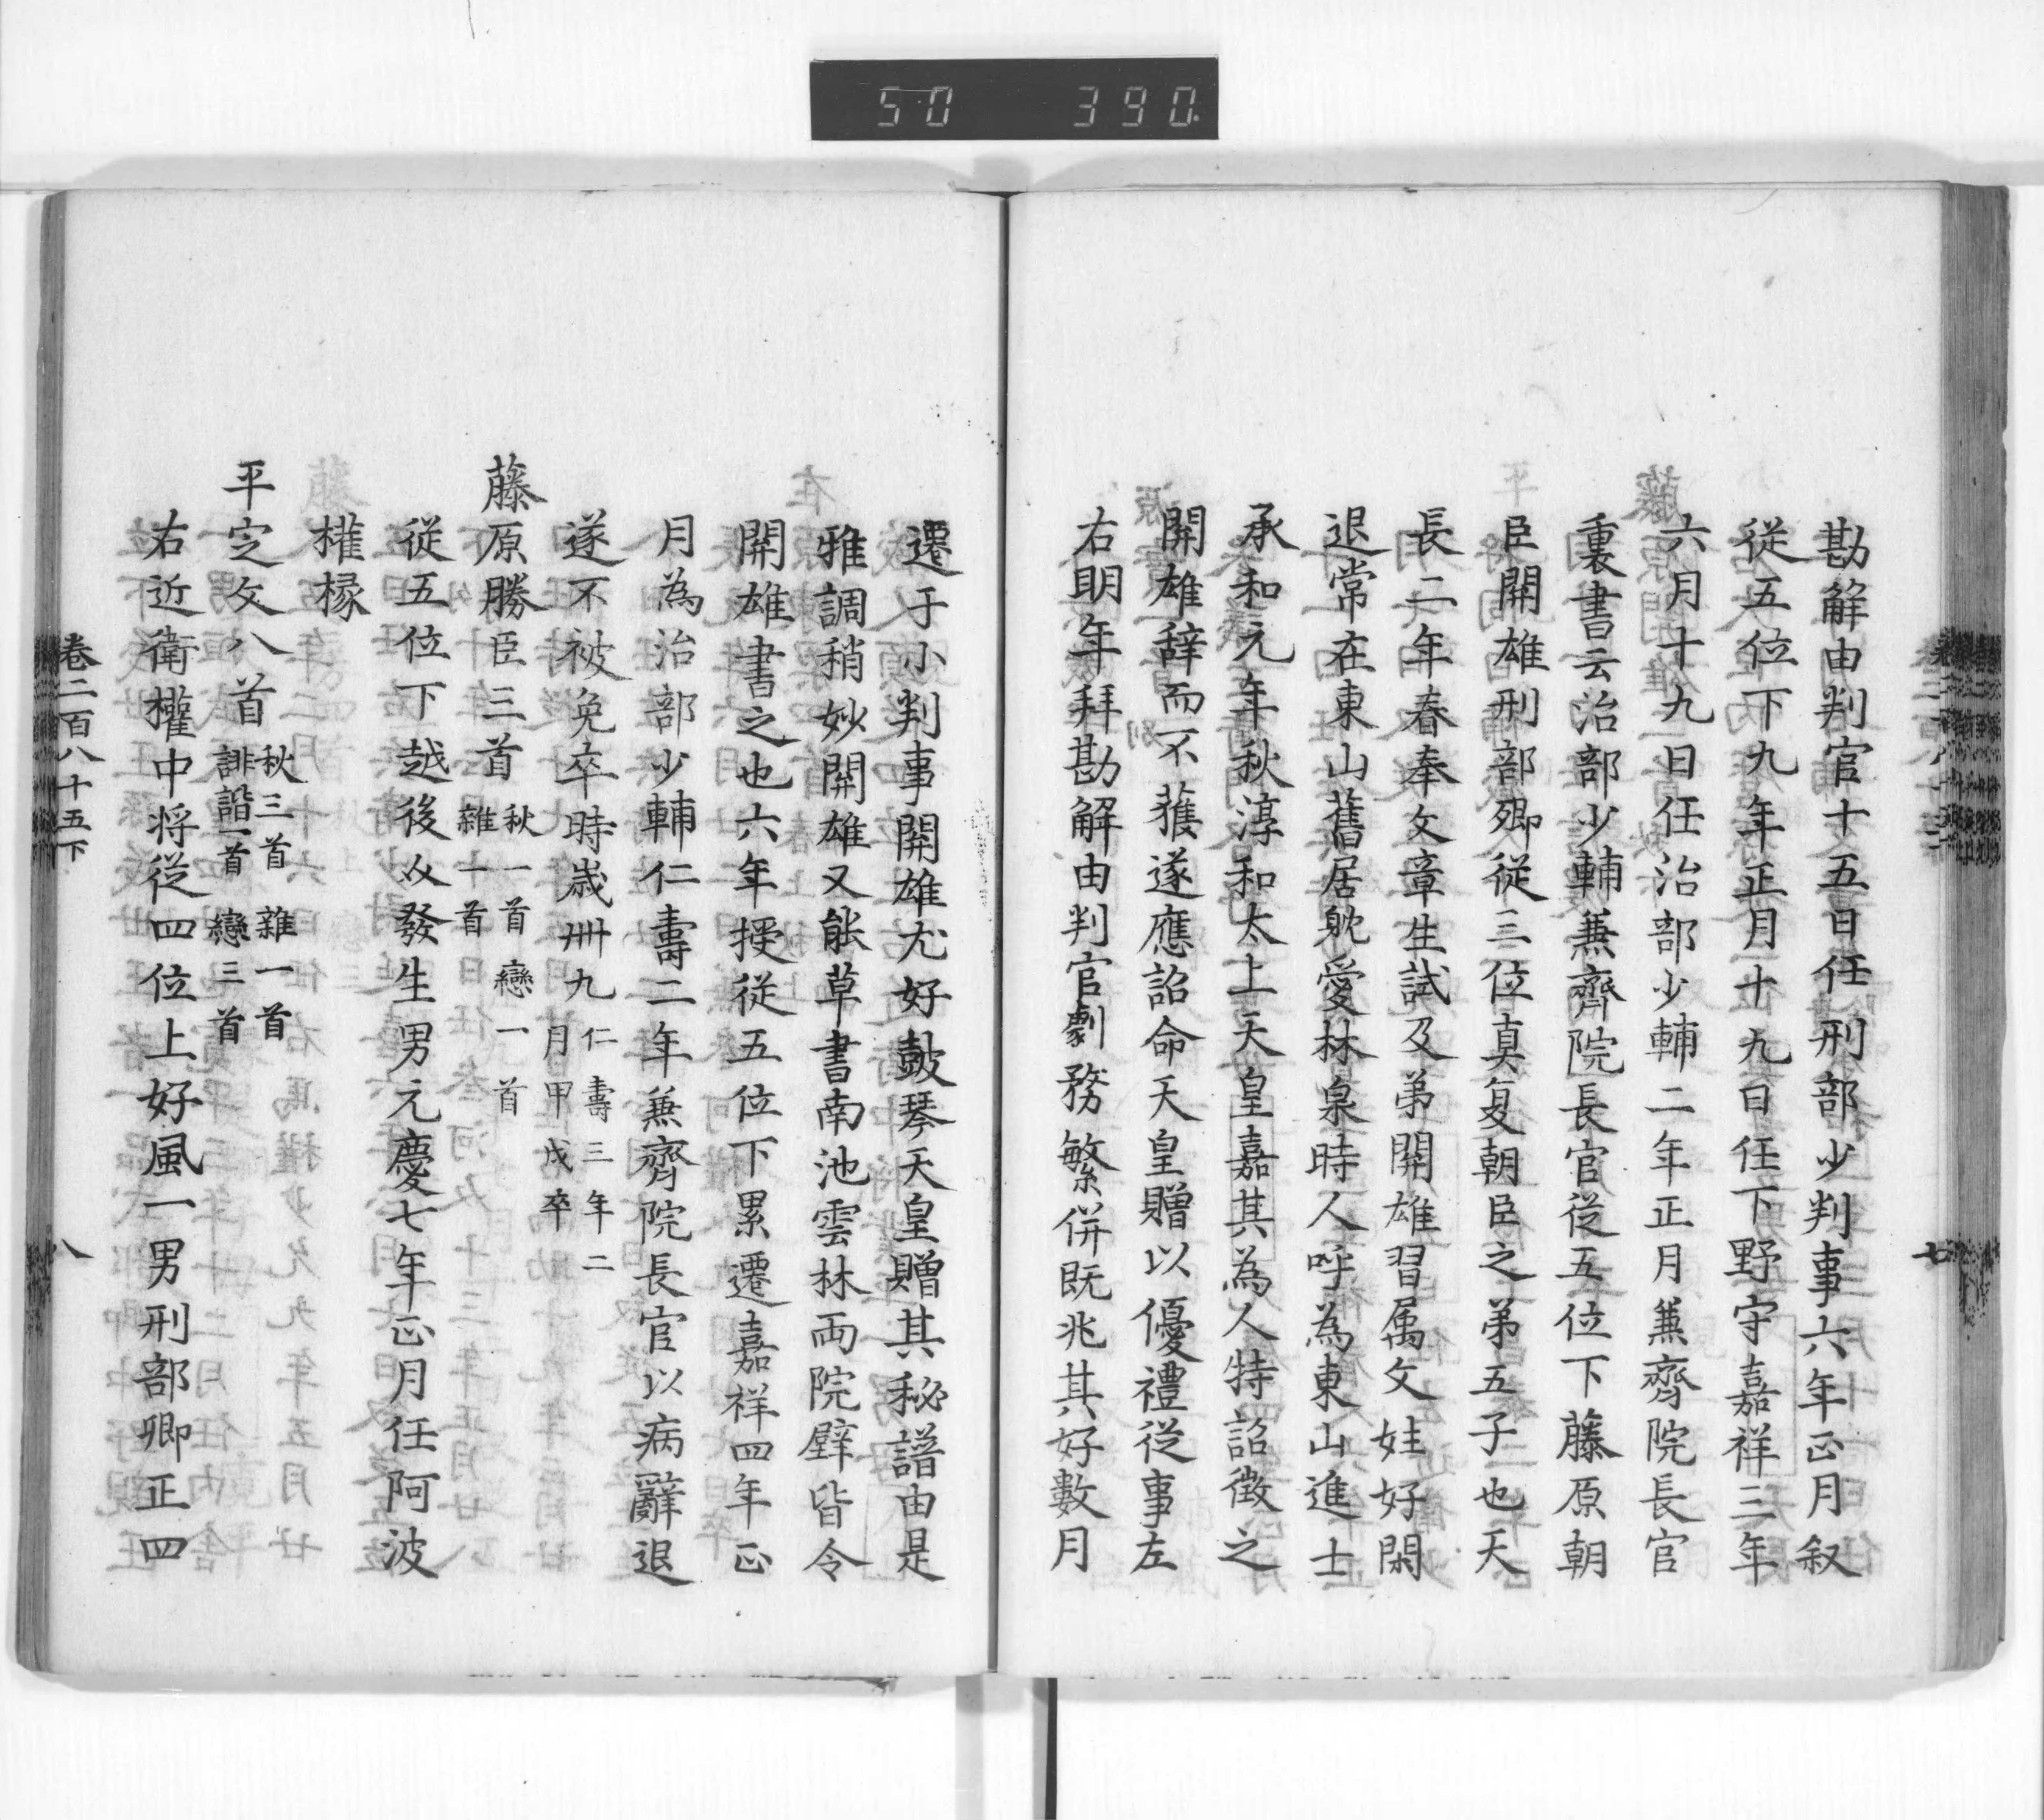 50 390
勘解由判官十五日任刑部少判事六年正月叙
従五位下九年正月十九日任下野守嘉祥三年
六月十九日任治部少輔二年正月兼齋院長官
裏書云治部少輔兼齊院長官従五位下藤原朝
臣関雄刑部卿従三位真夏朝臣之第五子也天
長二年春奉文章生試及弟関雄習属文性好閑
退常在東山舊居躭愛林泉時人呼為東山進士
承和元年秋淳和太上天皇嘉其為人特詔徴之
関雄辞而不獲遂應詔命天皇贈以優禮従事左
右明年拜勘解由判官劇務繁併既兆其好數月
遷于小判事関雄尤好鼓琴天皇贈其秘譜由是
雅調稍妙関雄又能草書南池雲林両院壁皆令
関雄書之也六年授従五位下累遷嘉祥四年正
月為治部少輔仁壽二年兼齊院長官以病辭退
遂不被免卒時歳卌九仁壽三年二
月甲戌卒
藤原勝臣三首秋一首 戀一首
雜一首
従五位下越後介發生男元慶七年正月任阿波
權掾
平定文八首秋三首 雜一首
誹諧一首 戀三首
右近衛權中将従四位上好風一男刑部卿正四
卷二百八十五下
七
八